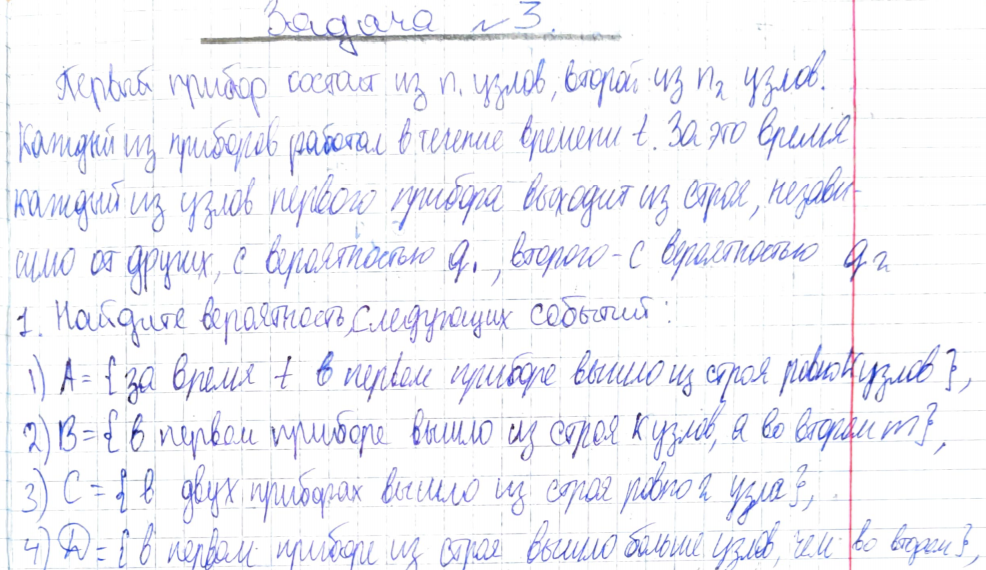 Задача №3.
Первый прибор состоит из n₁ узлов, второй из n₂ узлов.
Каждый из приборов работал в течение времени t. За это время
каждый из узлов первого прибора выходит из строя, незави-
симо от других, с вероятностью q₁, второго - с вероятностью q₂
1. Найдите вероятность следующих событий:
1) A = {за время t в первом приборе вышло из строя ровно k узлов},
2) B = {в первом приборе вышло из строя k узлов, а во втором m},
3) C = {в двух приборах вышло из строя ровно 2 узла},
4) D = {в первом приборе из строя вышло больше узлов, чем во втором},